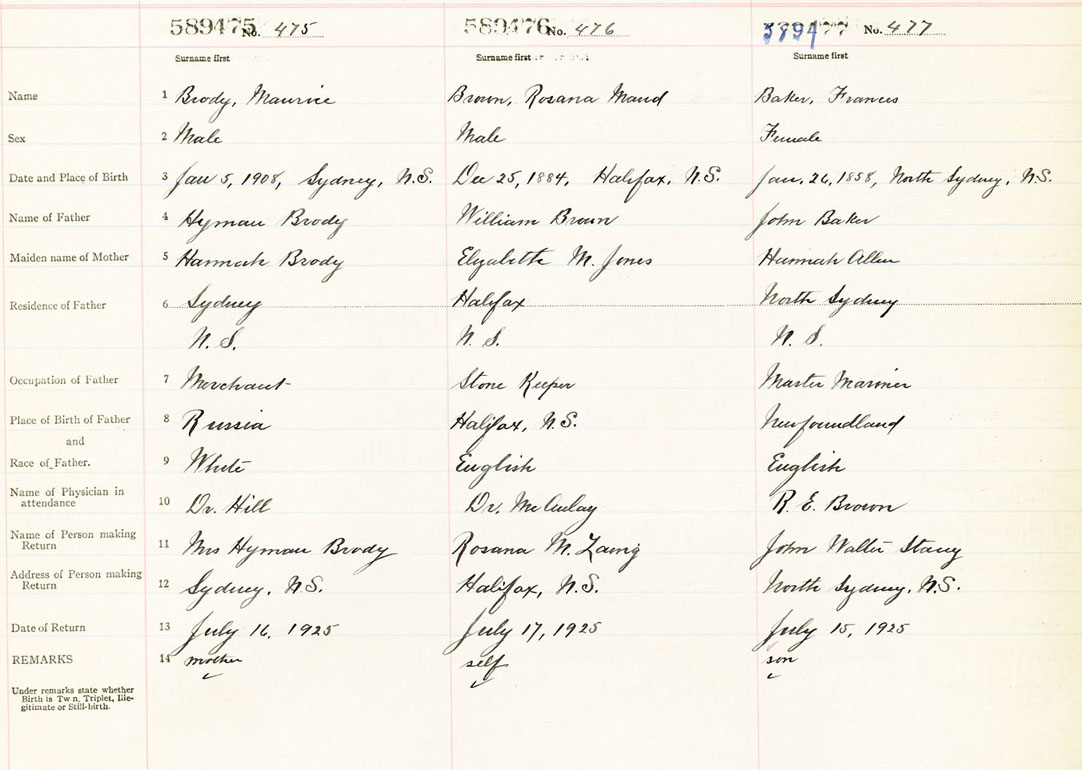 589475 No. 475 589476 No. 476 589477 No. 477
Surname first Surname first Surname first
Name 1 Brody, Maurice Brown, Rosana Maud Baker, Frances
Sex 2 Male Male Female
Date and Place of Birth 3 Jan 5, 1908, Sydney, N.S. Dec 25, 1884, Halifax, N.S. Jan. 26, 1858, North Sydney, N.S.
Name of Father 4 Hyman Brody William Brown John Baker
Maiden name of Mother 5 Hannah Brody Elizabeth M. Jones Hannah Allen
Residence of Father 6 Sydney Halifax North Sydney
N. S. N. S. N. S.
Occupation of Father 7 Merchant Stone Keeper Master Mariner
Place of Birth of Father 8 Russia Halifax, N.S. Newfoundland
and
Race of Father. 9 White English English
Name of Physician in
attendance 10 Dr. Hill Dr. McAulay R. E. Brown
Name of Person making
Return 11 Mrs Hyman Brody Rosana M. John Walter
Address of Person making
Return 12 Sydney, N.S. Halifax, N.S. North Sydney, N.S.
Date of Return 13 July 16, 1925 July 17, 1925 July 15, 1925
REMARKS 14 mother self son
Under remarks state whether
Birth is Tw n, Triplet, Ille-
gitimate or Still-birth.